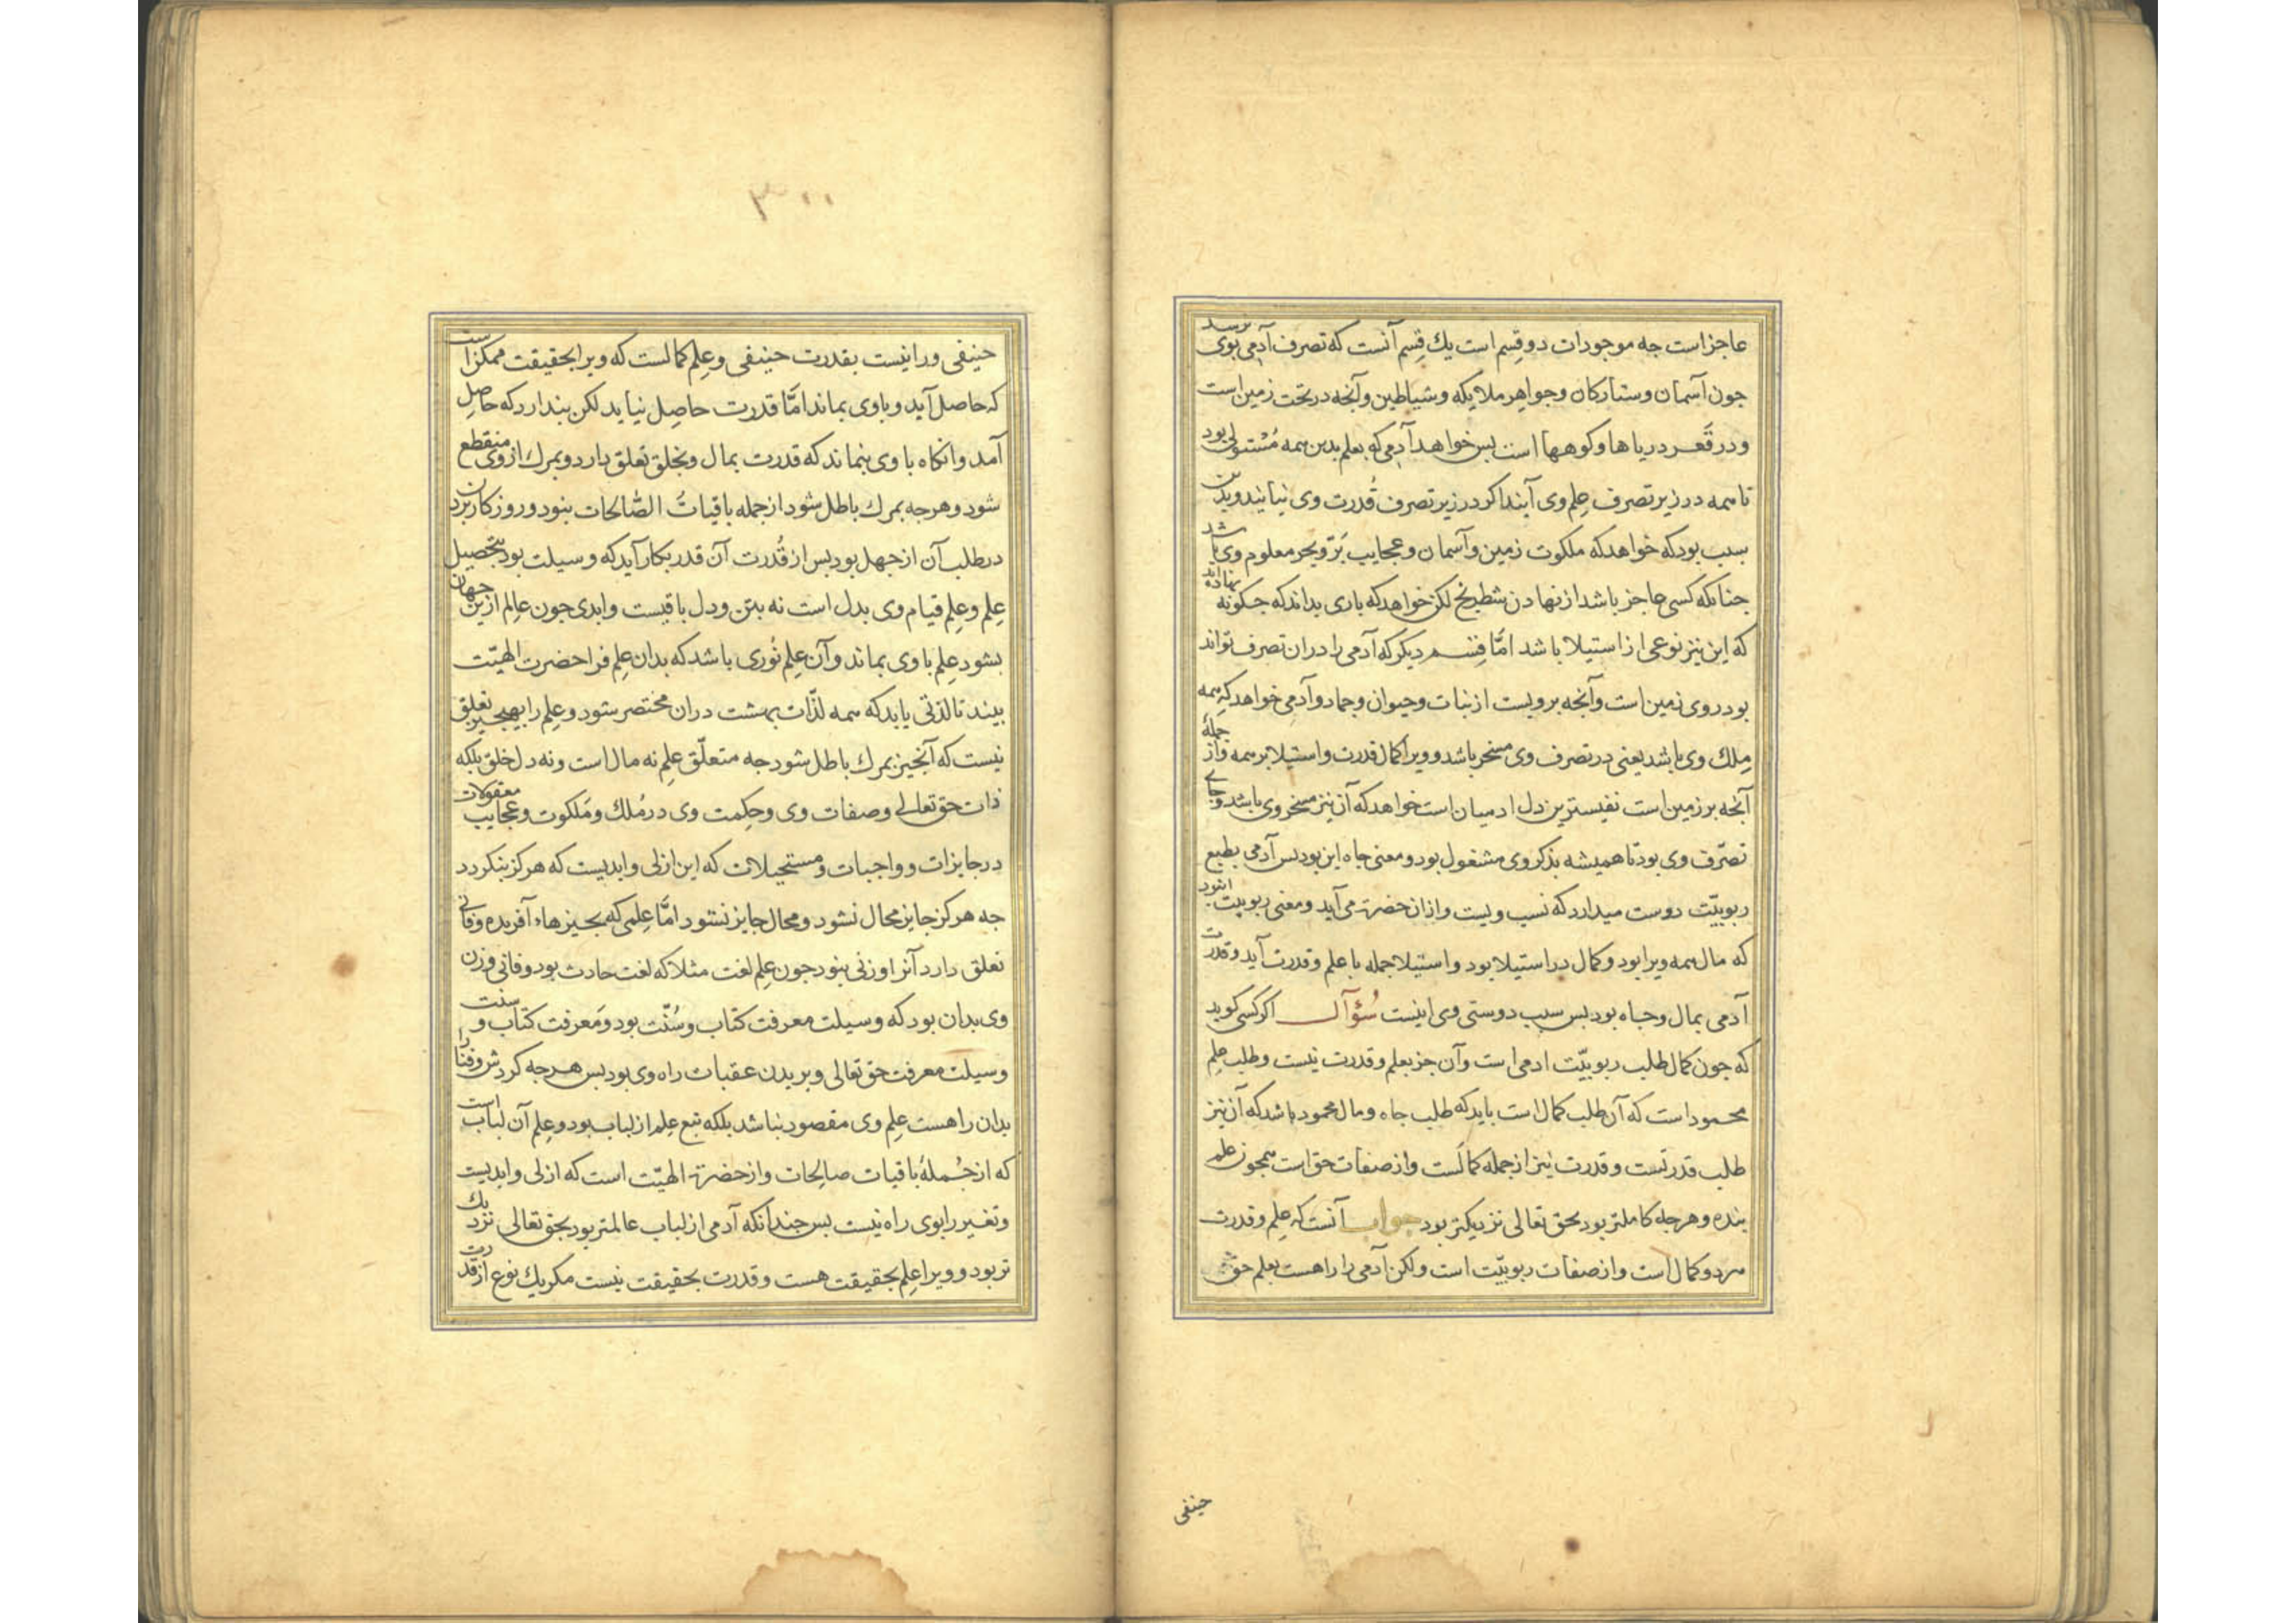 عاجزاست جه موجودات دو قِسم است یك قِسم آنست که تصرف آدمی بوی برسد
جون آسمان و ستارکان و جواهِر ملایکه و شیاطین و آنجه در تحت زمین است
و در قَعر دریاها و کوهها است بس خواهد آدمی که بعلم بدین همه مُسْتولی بود
تا همه در زیر تصرف عِلم وی آیند اکر در زیر تصرف قُدرت وی نیایند و بدین
سبب بود که خواهد که ملکوت زمین و آسمان و عجایب بَرّ و بحر معلوم وی باشد
جنانکه کسی عاجز باشد از نهادن شطرنج لکن خواهد که باری بداند که جکونه نهاده‌اند
که این نیز نوعی از استیلا باشد امّا قِسم دیکر که آدمی را دران تصرف تواند
بود روی زمین است و آنجه برویست از نبات و حیوان و جماد و آدمی خواهد که همه
مِلك وی باشد یعنی در تصرف وی مسخر باشد و ویرا کمال قدرت و استیلا بر همه و از جملهٔ
آنجه بر زمین است نفیسترین دل ادمیان است خواهد که آن نیز مسخر وی باشد و جای
تصرّف وی بود تا همیشه بذکر وی مشغول بود و معنی جاه این بود بس آدمی بطبع
ربوبیّت دوست میدارد که نسب ویست و ازان حضرة می‌آید و معنی ربوبیت این بود
که مال همه ویرا بود و کمال در استیلا بود و استیلا جمله با علم و قدرت آید و قدرت
آدمی بمال و جاه بود بس سبب دوستی وی اینست سُؤآل اکر کسی کوید
که جون کمال طلب ربوبیّت ادمی است و آن جز بعلم و قدرت نیست و طلب عِلم
محمود است که آن طلب کمال است باید که طلب جاه و مال محمود باشد که آن نیز
طلب قدرتست و قدرت نیز از جمله کمالَست و از صفات حق است همجون علم
بنده و هرجه کاملتر بود بحق تعالی نزدیکتر بود جواب آنست که عِلم و قدرت
هردو کمال است و از صفات ربوبیّت است ولکن آدمی را راهست بعلم حق
حنیفی
۳۰۰
حنیفی و راینست بقدرت حنیفی و عِلم کمالست که ویرا بحقیقت ممکن است
که حاصل آید و با وی بماند امّا قدرت حاصِل نیاید لکن بندارد که حاصِل
آمد و انکاه با وی بنماند که قدرت بمال و بخلق تعلق دارد و بمرك از وی منقطع
شود و هرجه بمرك باطل شود از جمله باقیاتُ الصّالحات بنود و روزکار بردن
در طلب آن از جهل بود بس از قُدرت آن قدر بکار آید که وسیلت بود بتحصیل
عِلم و عِلم قیام وی بدل است نه بتن و دل باقیست و ابدی جون عالِم ازین جهان
بشود عِلم با وی بماند و آن عِلم نُوری باشد که بدان عِلم فرا حضرت الهیّت
بیند تا لذتی یابد که همه لذّات بهشت دران مختصر شود و علِم را بهیجیز تعلق
نیست که آنجیز بمرك باطل شود جه متعلّق علِم نه مال است و نه دل خلق بلکه
ذات حق تعالی و صفات وی و حِکمت وی در مُلك و مَلکوت و عجایب معقولات
در جایزات و واجبات و مستحیلات که این ازلی و ابدیست که هرکز بنکردد
جه هرکز جایز محال نشود و محال جایز نشود امّا عِلمی که بجیزهاء آفریده و فانی
تعلق دارد آنرا وزنی بنود جون عِلم لغت مثلا که لغت حادث بود و فانی و زن
وی بدان بود که وسیلت معرفت کتاب و سُنّت بود و مَعرفت کتاب و سنت
وسیلت معرفت حق تعالی و بریدن عقبات راه وی بود بس هرجه کردش و فنا را
بدان راهست عِلم وی مقصود بنا شد بلکه تبع عِلم از لباب بود و عِلم آن لباب است
که از جُملهٔ باقیات صالِحات و از حضرة الهیّت است که ازلی و ابدیست
و تغییر را بوی راه نیست بس جندانکه آدمی از لباب عالمتر بود بحق تعالی نزدیك
تر بود و ویرا عِلم بحقیقت هست و قدرت بحقیقت نیست مکر یك نوع از قدرت